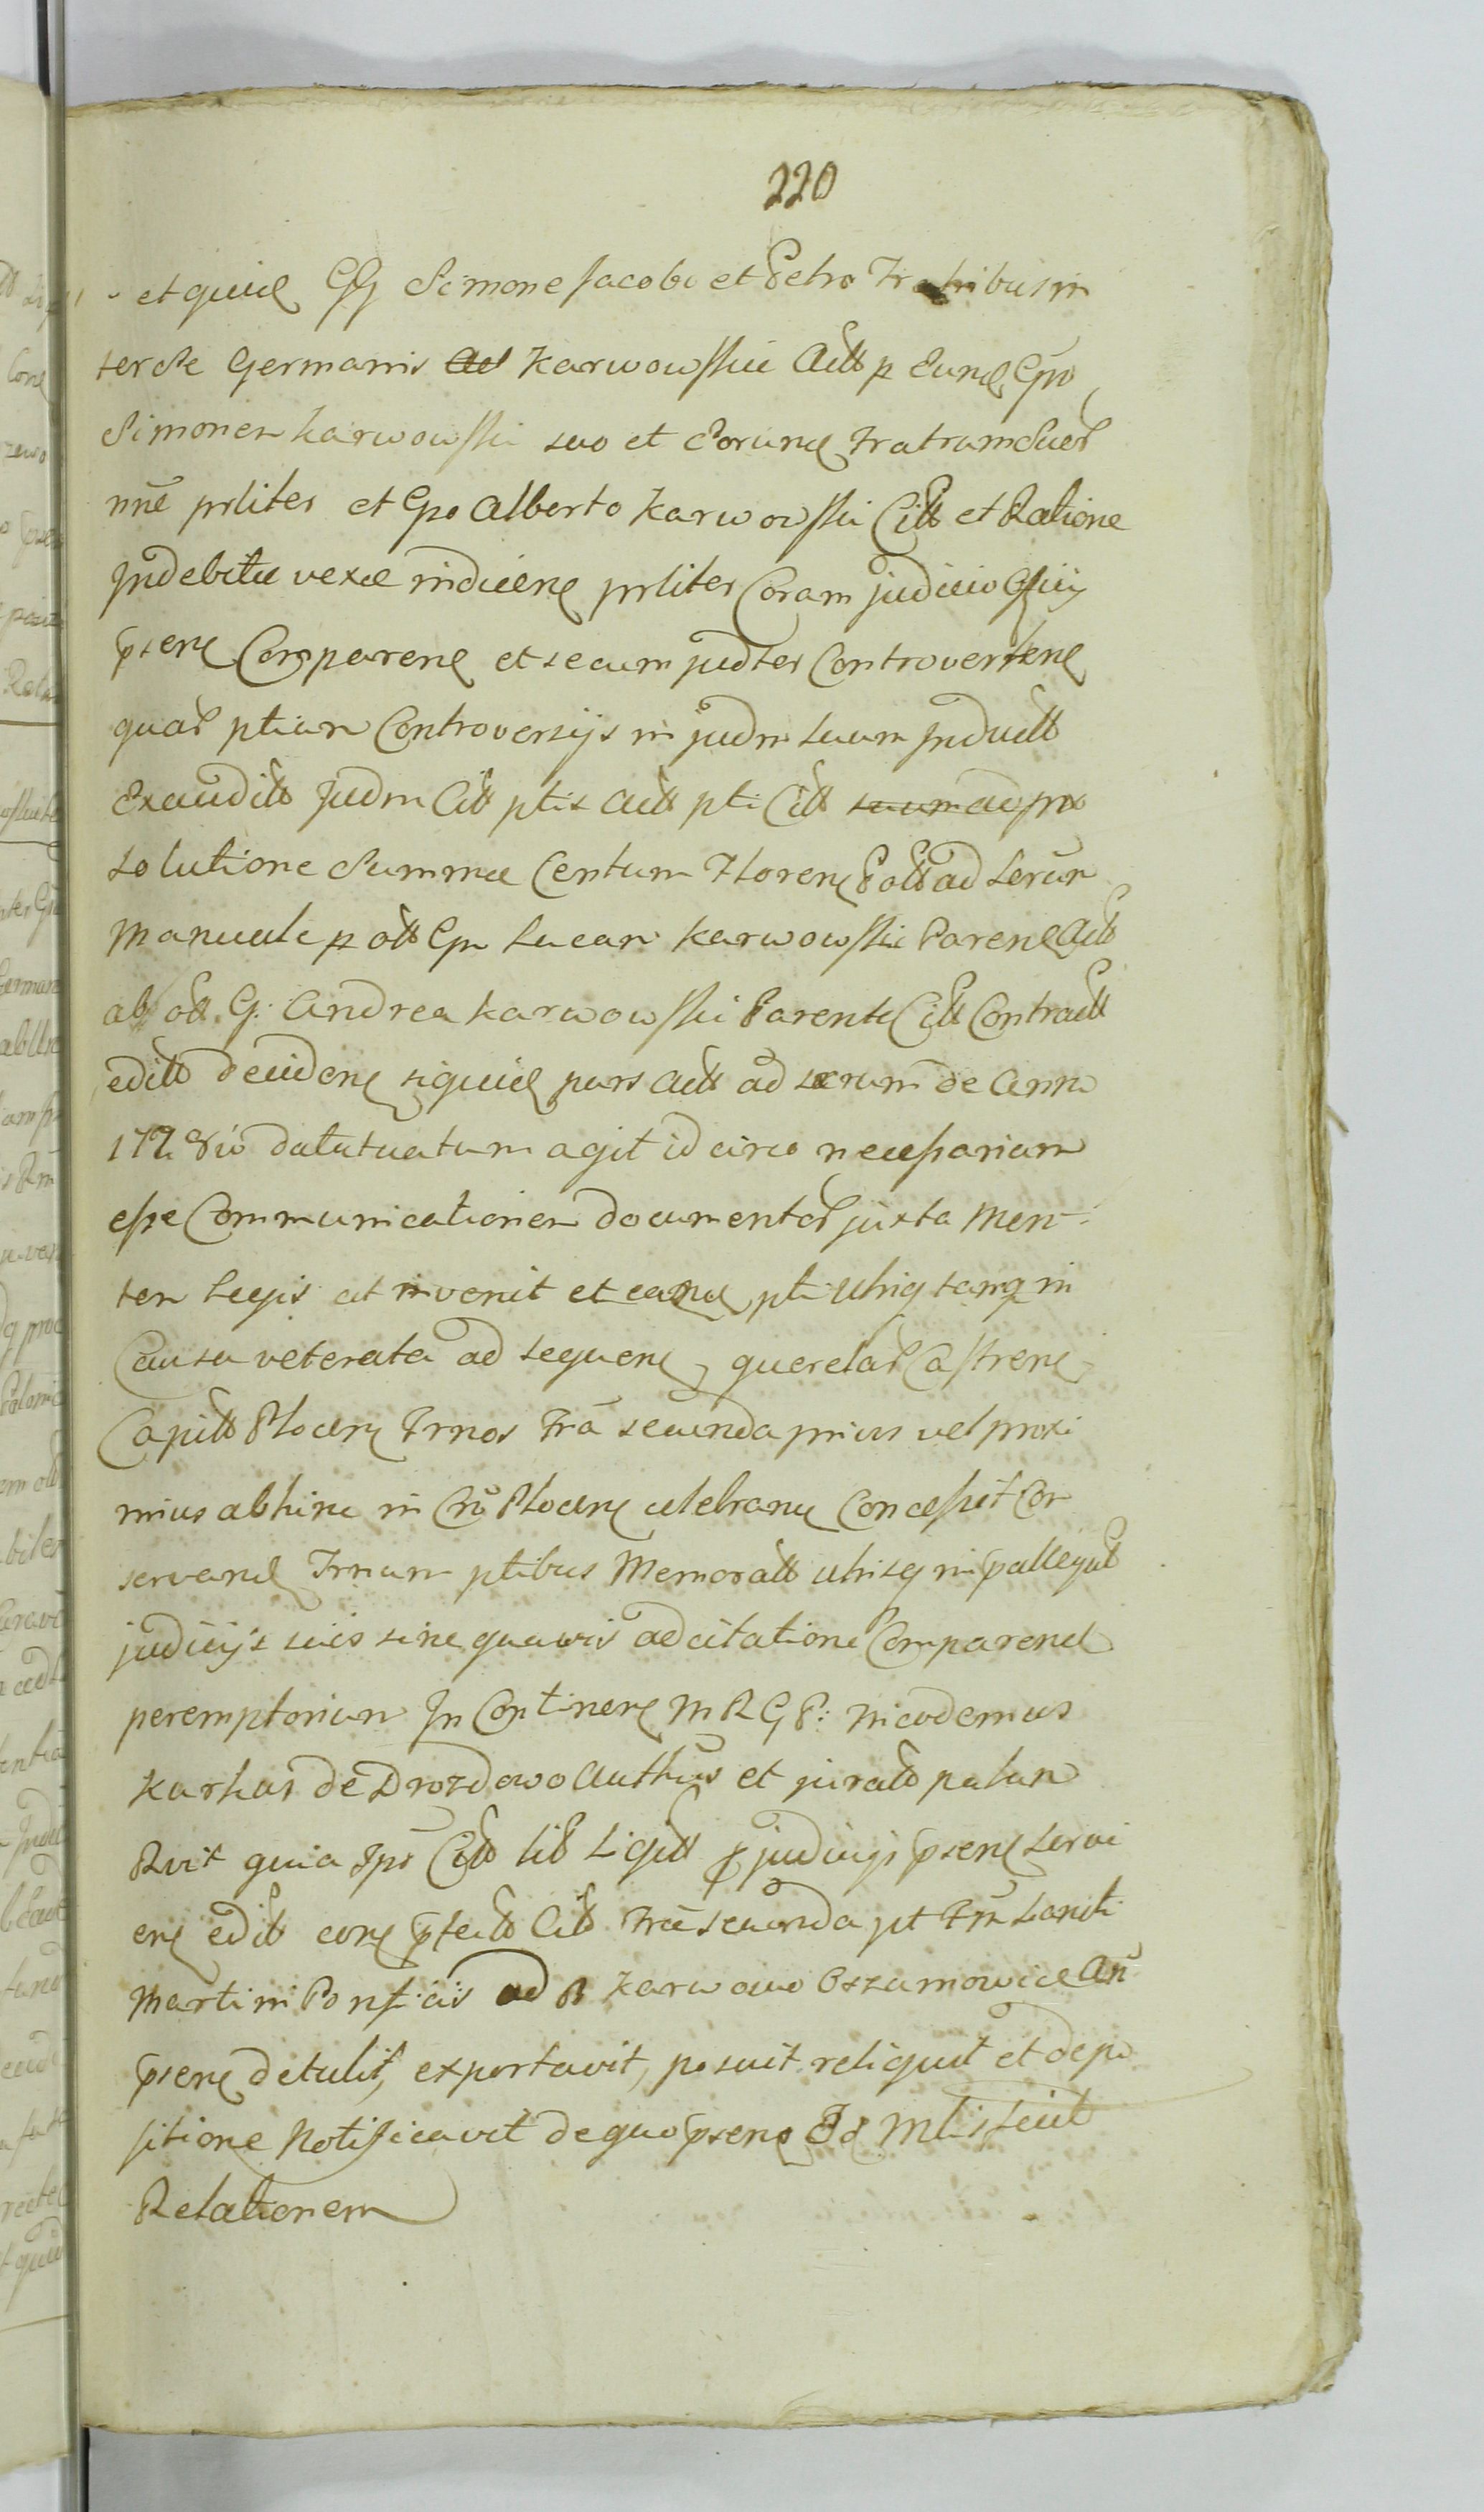 220
et quid GG Simone Jacobo et Petro Fratribus in
ter se Germanis Karwowskie Actt p Eund Gno
Simonem Karwowski suo et Eorund Fratrum Suor
nne prliter et Gno Alberto Karwowski Citt et Ratione
Indebitæ vexæ indicen prliter Coram judicio
psenq Comparen et secum judter Controverten
quar ptium Controversijs in judm suum Induct
Exauditt Judm Citt ptis Actt pti Citt
solutione Summæ Centum Floren Poll ad Scrum
Manuale p ott Gn Lucam Karwowskie Paren Actt
ab ott G: Andrea Karwowski Parente Citt Contractt
editt deciden siquid pars Actt ad scrum de Anno
1728vo datutuatum agit idcirco necessarium
esse Communicationem documentor juxta Men-
tem Legis at invenit et eand pti utriq tanq in
Causa veterata ad sequen querelar Castren
Capitt Plocen Trnos Fra secunda prius vel proxi
mius abhinc in Cro Plocen celebran Concessit Con
servand Trnum ptibus Memoratt utrisq in
judicijs suis sine quavis adcitatione Comparend
peremptorium In Continen M R G P: Nicodemus
Karkas de Drozdowo Authus et juratt palam
Rvit quia Ips Citt litt judicijs psen servi
en editt psctitt Citt Fra secunda pt Fm Sancti
Martini Ponficis ad B Karwowo Oszamowice An
psen detulit, exportavit, posuit reliquit et depo
sitione Notificavit de quo psens Os Mlis fecit
Relationem